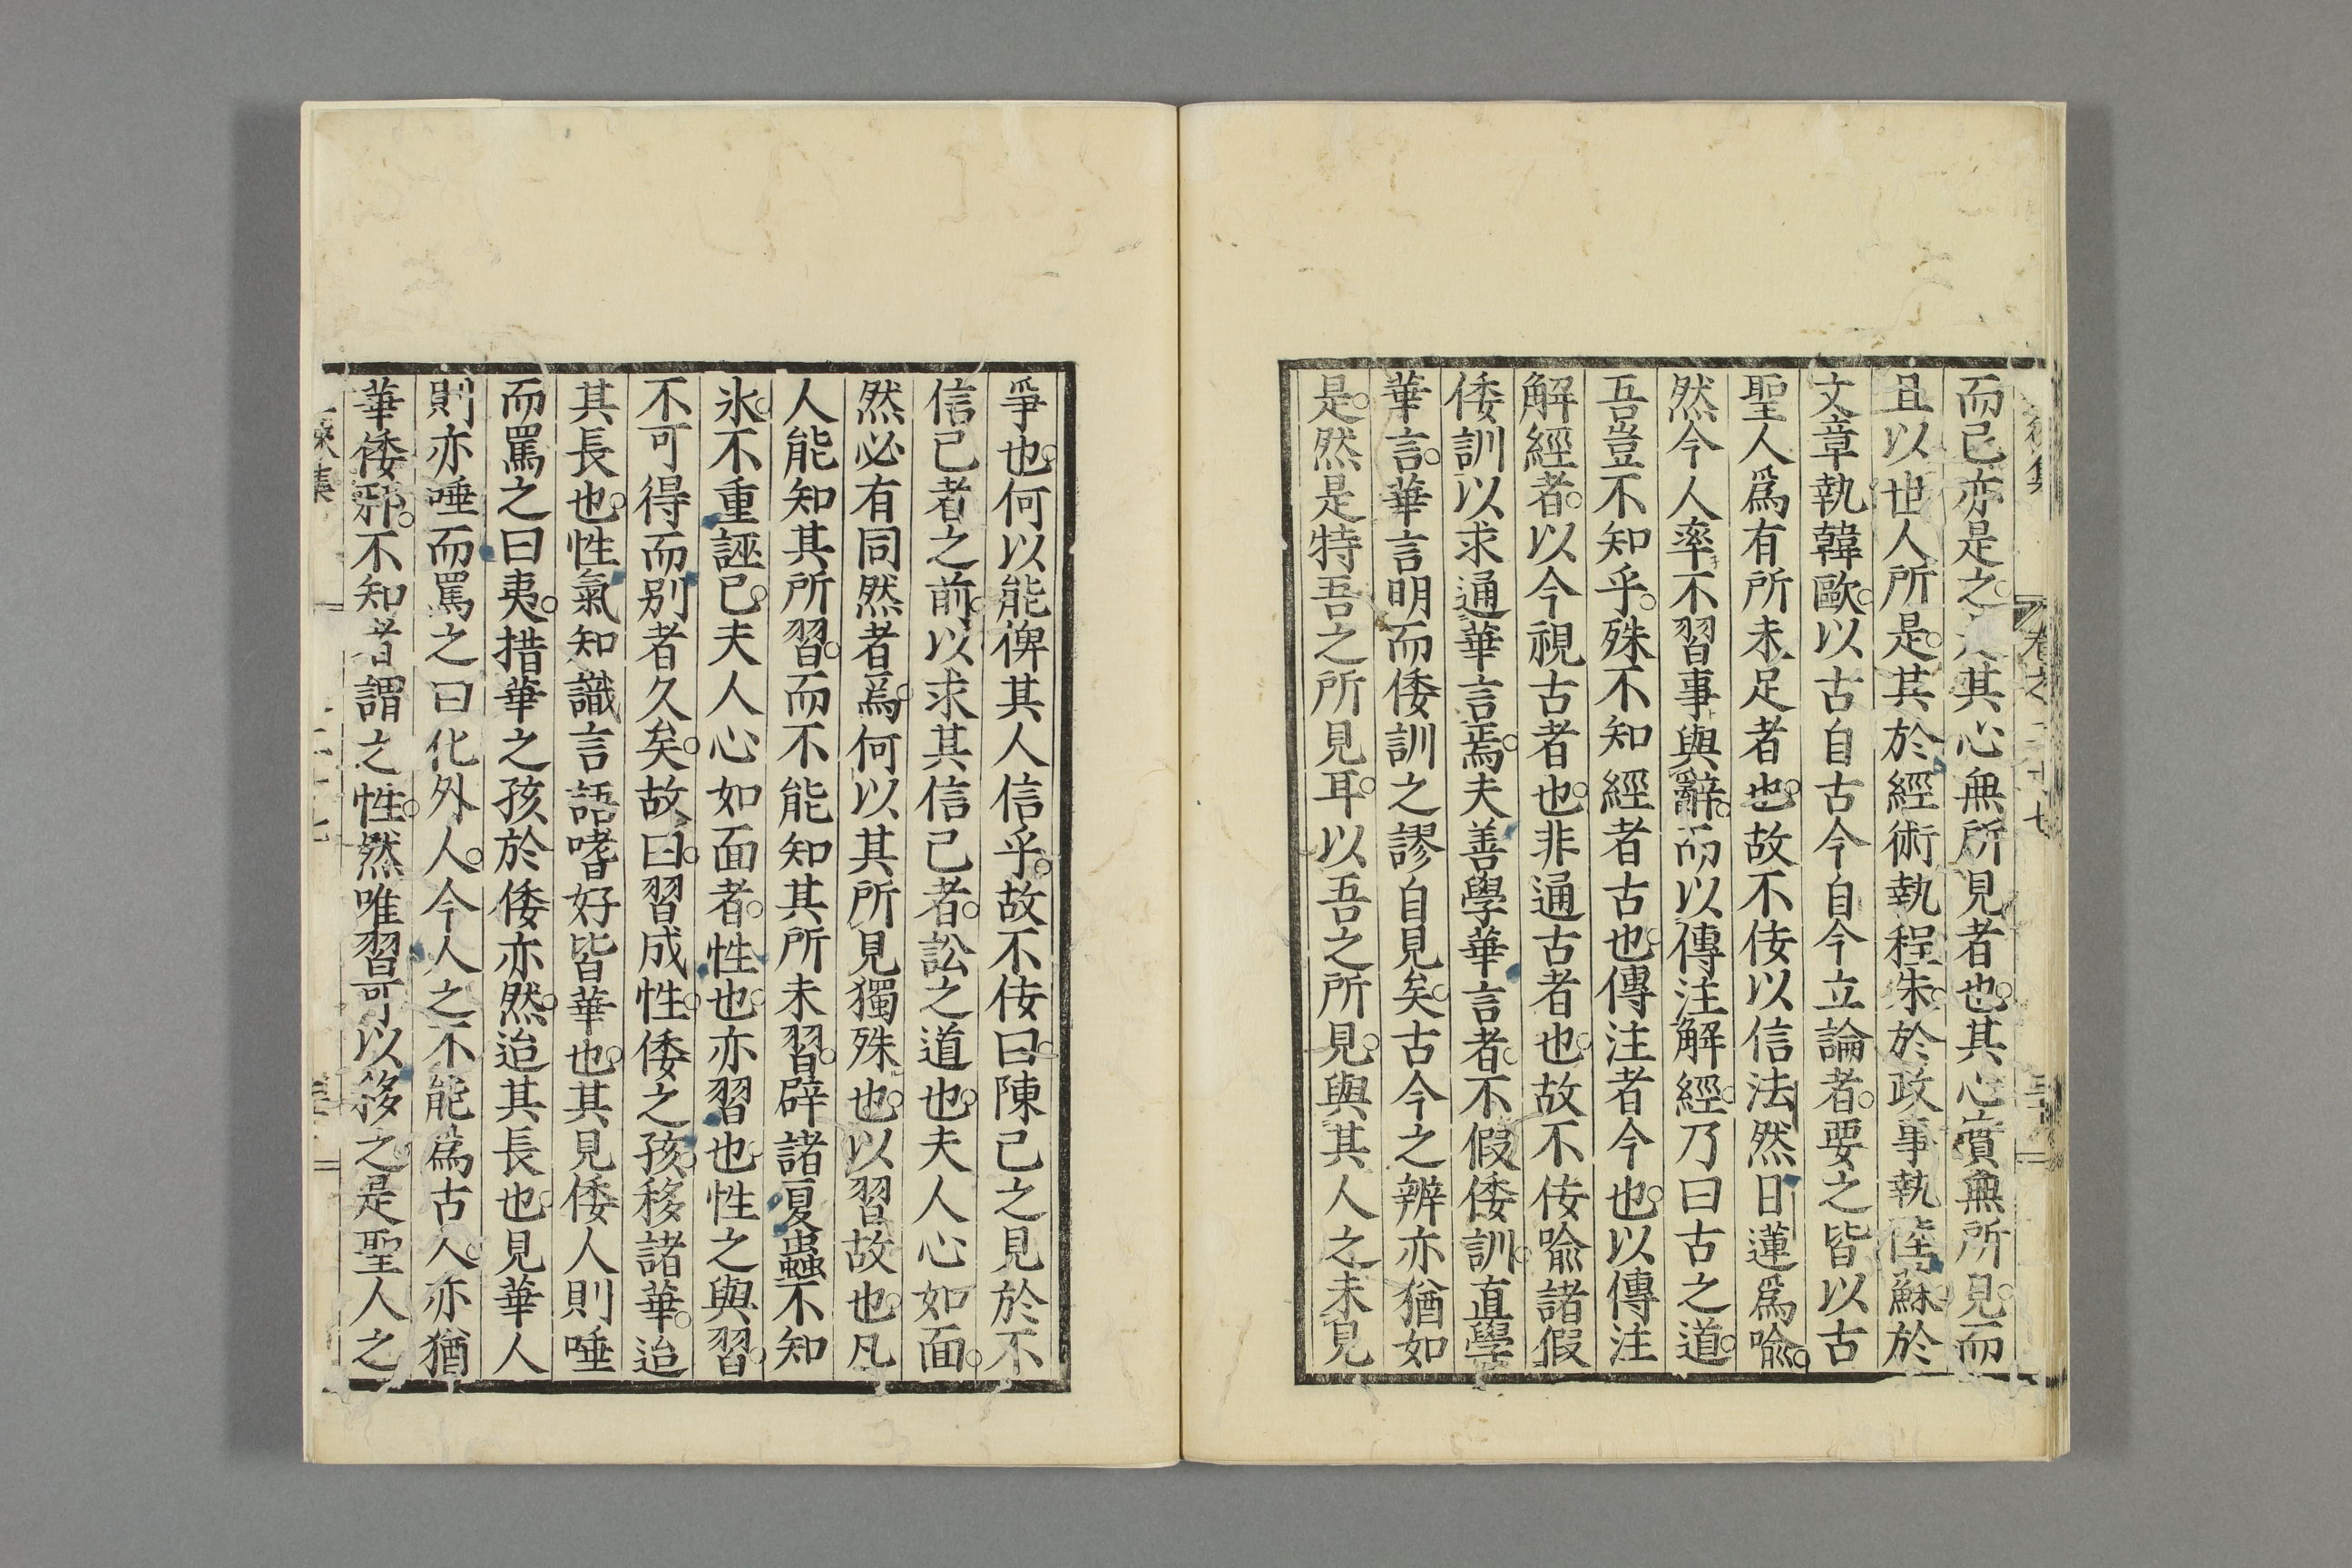 而已亦是之其心無所見者也其心實無所見而
且以世人所是其於經術執程朱於政事執陸蘇於
文章執韓歐以古自古今自今立論者要之皆以古
聖人爲有所未足者也故不侫以信法然日蓮爲喩
然今人率不習事與辭而以傳注解經乃曰古之道
吾豈不知乎殊不知經者古也傳注者今也以傳注
解經者以今視古者也非通古者也故不侫喩諸假
倭訓以求通華言焉夫善學華言者不假倭訓直學
華言華言明而倭訓之謬自見矣古今之辨亦猶如
是然是特吾之所見耳以吾之所見與其人之未見
爭也何以能俾其人信乎故不侫曰陳己之見於不
信己者之前以求其信己者訟之道也夫人心如面
然必有同然者焉何以其所見獨殊也以習故也凡
人能知其所習而不能知其所未習辟諸夏蟲不知
氷不重誣已夫人心如面者性也亦習也性之與習
不可得而別者久矣故曰習成性倭之孩移諸華迨
其長也性氣知識言語嗜好皆華也其見倭人則唾
而罵之曰夷措華之孩於倭亦然迨其長也見華人
則亦唾而罵之曰化外人今人之不能爲古人亦猶
華倭邪不知者謂之性然唯習可以移之是聖人之